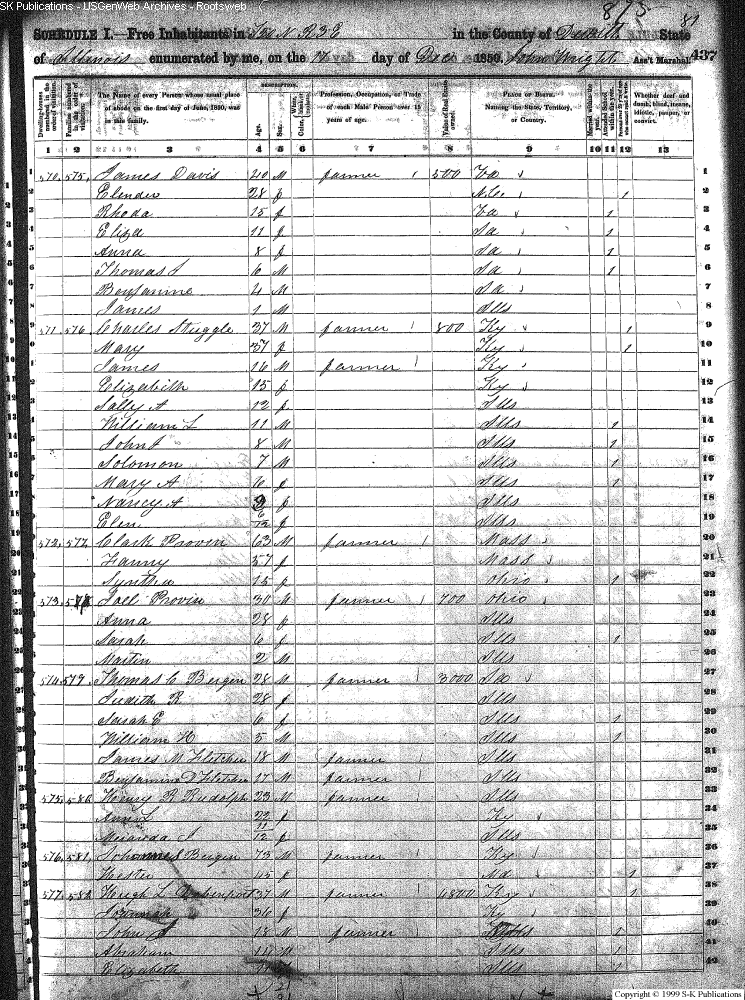 SK Publications - USGenWeb Archives - Rootsweb
875
81
SCHEDULE I.—Free Inhabitants in T20 N. R3E in the County of Dewitt State
of Illinois enumerated by me, on the 17 day of Dec 1850. John Wright Ass't Marshal. 437
Dwelling-houses numbered in the order of visitation.
Families numbered in the order of visitation.
The Name of every Person whose usual place of abode on the first day of June, 1850, was in this family.
DESCRIPTION.
Age.
Sex.
Color
Profession, Occupation, or Trade of each Male Person over 15 years of age.
Value of Real Estate owned.
PLACE OF BIRTH. Naming the State, Territory, or Country.
Married within the year.
Attended School within the year.
Whether deaf and dumb, blind, insane, idiotic, pauper, or convict.
1 2 3 4 5 6 7 8 9 10 11 12 13
1 570 575 James Davis 40 M farmer 500 Va 1
2 Elender 28 f N.C. 1 2
3 Rhoda 15 f Va 1 3
4 Eliza 11 f Ia 1 4
5 Anna 8 f Ia 1 5
6 Thomas J 6 M Ia 1 6
7 Benjamine 4 M Ia 7
8 James 1 M Ills 8
9 571 576 Charles Struggle 37 M farmer 800 Ky 1 9
10 Mary 37 f Ky 1 10
11 James 16 M farmer Ky 11
12 Elizabeth 15 f Ky 12
13 Sally A 12 f Ills 13
14 William L 11 M Ills 1 14
15 John J 8 M Ills 1 15
16 Solomon 7 M Ills 1 16
17 Mary A 6 f Ills 1 17
18 Nancy A f Ills 18
19 Elen 6/12 f Ills 19
20 572 577 Clark Provin 63 M farmer Mass 20
21 Fanny 57 f Mass 21
22 Synthia 15 f Ohio 1 22
23 573 578 Joel Provin 30 M farmer 700 Ohio 23
24 Anna 28 f Ills 24
25 Sarah 6 f Ills 1 25
26 Martin 2 M Ills 26
27 574 579 Thomas C Bergen 28 M farmer 3000 Ia 27
28 Judith R 28 f Ills 28
29 Sarah E 6 f Ills 1 29
30 William H 5 M Ills 1 30
31 James M Fletcher 18 M farmer Ills 31
32 Benjamine D Fletcher 17 M farmer Ills 32
33 575 580 Henry R Rudolph 23 M farmer Ills 33
34 Ann L 22 f Ky 34
35 Miranda J 11/12 f Ills 35
36 576 581 Johannes Bergen 73 M farmer Ky 36
37 Hester 45 f Md 1 37
38 577 582 Hugh L Davenport 37 M farmer 4800 Ky 1 38
39 36 f Ky 39
40 John 15 M farmer Ills 1 40
41 Abraham 11 M Ills 1 41
42 Elizabeth f Ills 1 42
Copyright © 1999 S-K Publications